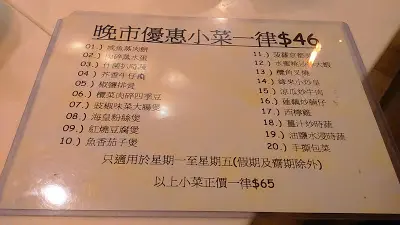 晚市優惠小菜一律$46
01.) 咸魚蒸肉餅
02.) 肉碎蒸水蛋
03.)
04.) 芥香牛仔
05.) 椒鹽排
06.) 欖菜肉碎四季豆
07.) 豉椒味菜大腸煲
08.) 海皇粉絲煲
09.) 紅燒豆腐煲
10.) 魚香茄子煲
11.) 菠蘿
12.) 水蜜桃
13.) 欖角叉燒
14.) 錦來小炒皇
15.) 涼瓜炒牛肉
16.)
17.) 西檸雞
18.) 薑汁炒時蔬
19.) 油鹽水浸時蔬
20.) 手撕包菜
只適用於星期一至星期五(假期及齋期除外)
以上小菜正價一律$65